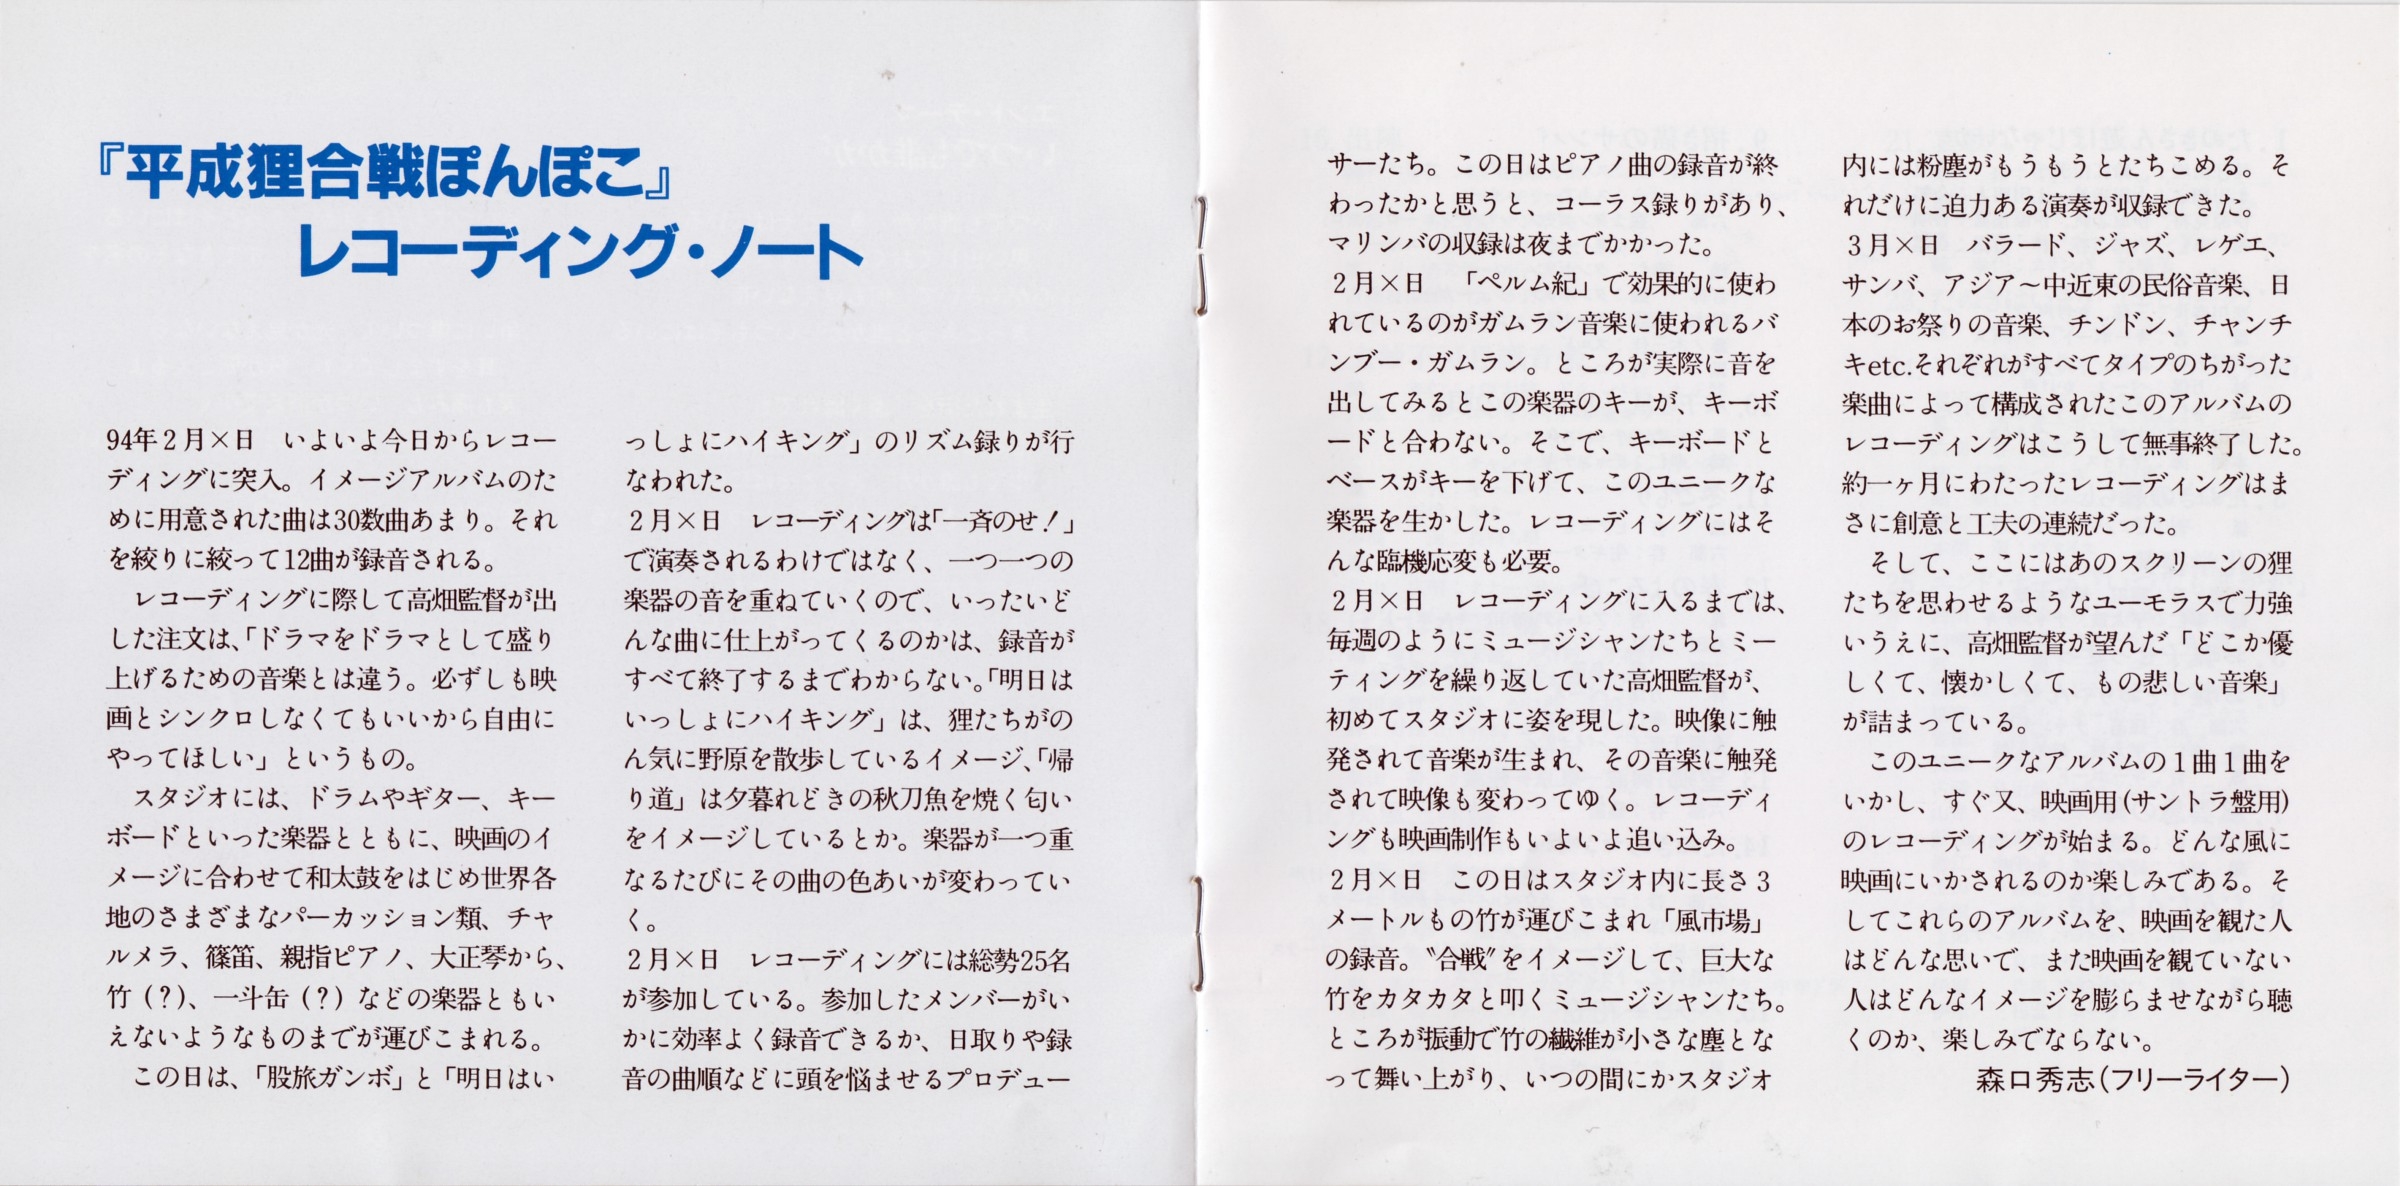 『平成狸合戦ぽんぽこ』
レコーディング・ノート
94年2月×日　いよいよ今日からレコー
ディングに突入。イメージアルバムのた
めに用意された曲は30数曲あまり。それ
を絞りに絞って12曲が録音される。
　レコーディングに際して高畑監督が出
した注文は、「ドラマをドラマとして盛り
上げるための音楽とは違う。必ずしも映
画とシンクロしなくてもいいから自由に
やってほしい」というもの。
　スタジオには、ドラムやギター、キー
ボードといった楽器とともに、映画のイ
メージに合わせて和太鼓をはじめ世界各
地のさまざまなパーカッション類、チャ
ルメラ、篠笛、親指ピアノ、大正琴から、
竹（？）、一斗缶（？）などの楽器ともい
えないようなものまでが運びこまれる。
　この日は、「股旅ガンボ」と「明日はい
っしょにハイキング」のリズム録りが行
なわれた。
2月×日　レコーディングは「一斉のせ！」
で演奏されるわけではなく、一つ一つの
楽器の音を重ねていくので、いったいど
んな曲に仕上がってくるのかは、録音が
すべて終了するまでわからない。「明日は
いっしょにハイキング」は、狸たちがの
ん気に野原を散歩しているイメージ、「帰
り道」は夕暮れどきの秋刀魚を焼く匂い
をイメージしているとか。楽器が一つ重
なるたびにその曲の色あいが変わってい
く。
2月×日　レコーディングには総勢25名
が参加している。参加したメンバーがい
かに効率よく録音できるか、日取りや録
音の曲順などに頭を悩ませるプロデュー
サーたち。この日はピアノ曲の録音が終
わったかと思うと、コーラス録りがあり、
マリンバの収録は夜までかかった。
2月×日　「ペルム紀」で効果的に使わ
れているのがガムラン音楽に使われるバ
ンブー・ガムラン。ところが実際に音を
出してみるとこの楽器のキーが、キーボ
ードと合わない。そこで、キーボードと
ベースがキーを下げて、このユニークな
楽器を生かした。レコーディングにはそ
んな臨機応変も必要。
2月×日　レコーディングに入るまでは、
毎週のようにミュージシャンたちとミー
ティングを繰り返していた高畑監督が、
初めてスタジオに姿を現した。映像に触
発されて音楽が生まれ、その音楽に触発
されて映像も変わってゆく。レコーディ
ングも映画制作もいよいよ追い込み。
2月×日　この日はスタジオ内に長さ3
メートルもの竹が運びこまれ「風市場」
の録音。〝合戦〟をイメージして、巨大な
竹をカタカタと叩くミュージシャンたち。
ところが振動で竹の繊維が小さな塵とな
って舞い上がり、いつの間にかスタジオ
内には粉塵がもうもうとたちこめる。そ
れだけに迫力ある演奏が収録できた。
3月×日　バラード、ジャズ、レゲエ、
サンバ、アジア～中近東の民俗音楽、日
本のお祭りの音楽、チンドン、チャンチ
キetc.それぞれがすべてタイプのちがった
楽曲によって構成されたこのアルバムの
レコーディングはこうして無事終了した。
約一ヶ月にわたったレコーディングはま
さに創意と工夫の連続だった。
　そして、ここにはあのスクリーンの狸
たちを思わせるようなユーモラスで力強
いうえに、高畑監督が望んだ「どこか優
しくて、懐かしくて、もの悲しい音楽」
が詰まっている。
　このユニークなアルバムの1曲1曲を
いかし、すぐ又、映画用(サントラ盤用)
のレコーディングが始まる。どんな風に
映画にいかされるのか楽しみである。そ
してこれらのアルバムを、映画を観た人
はどんな思いで、また映画を観ていない
人はどんなイメージを膨らませながら聴
くのか、楽しみでならない。
森口秀志（フリーライター）